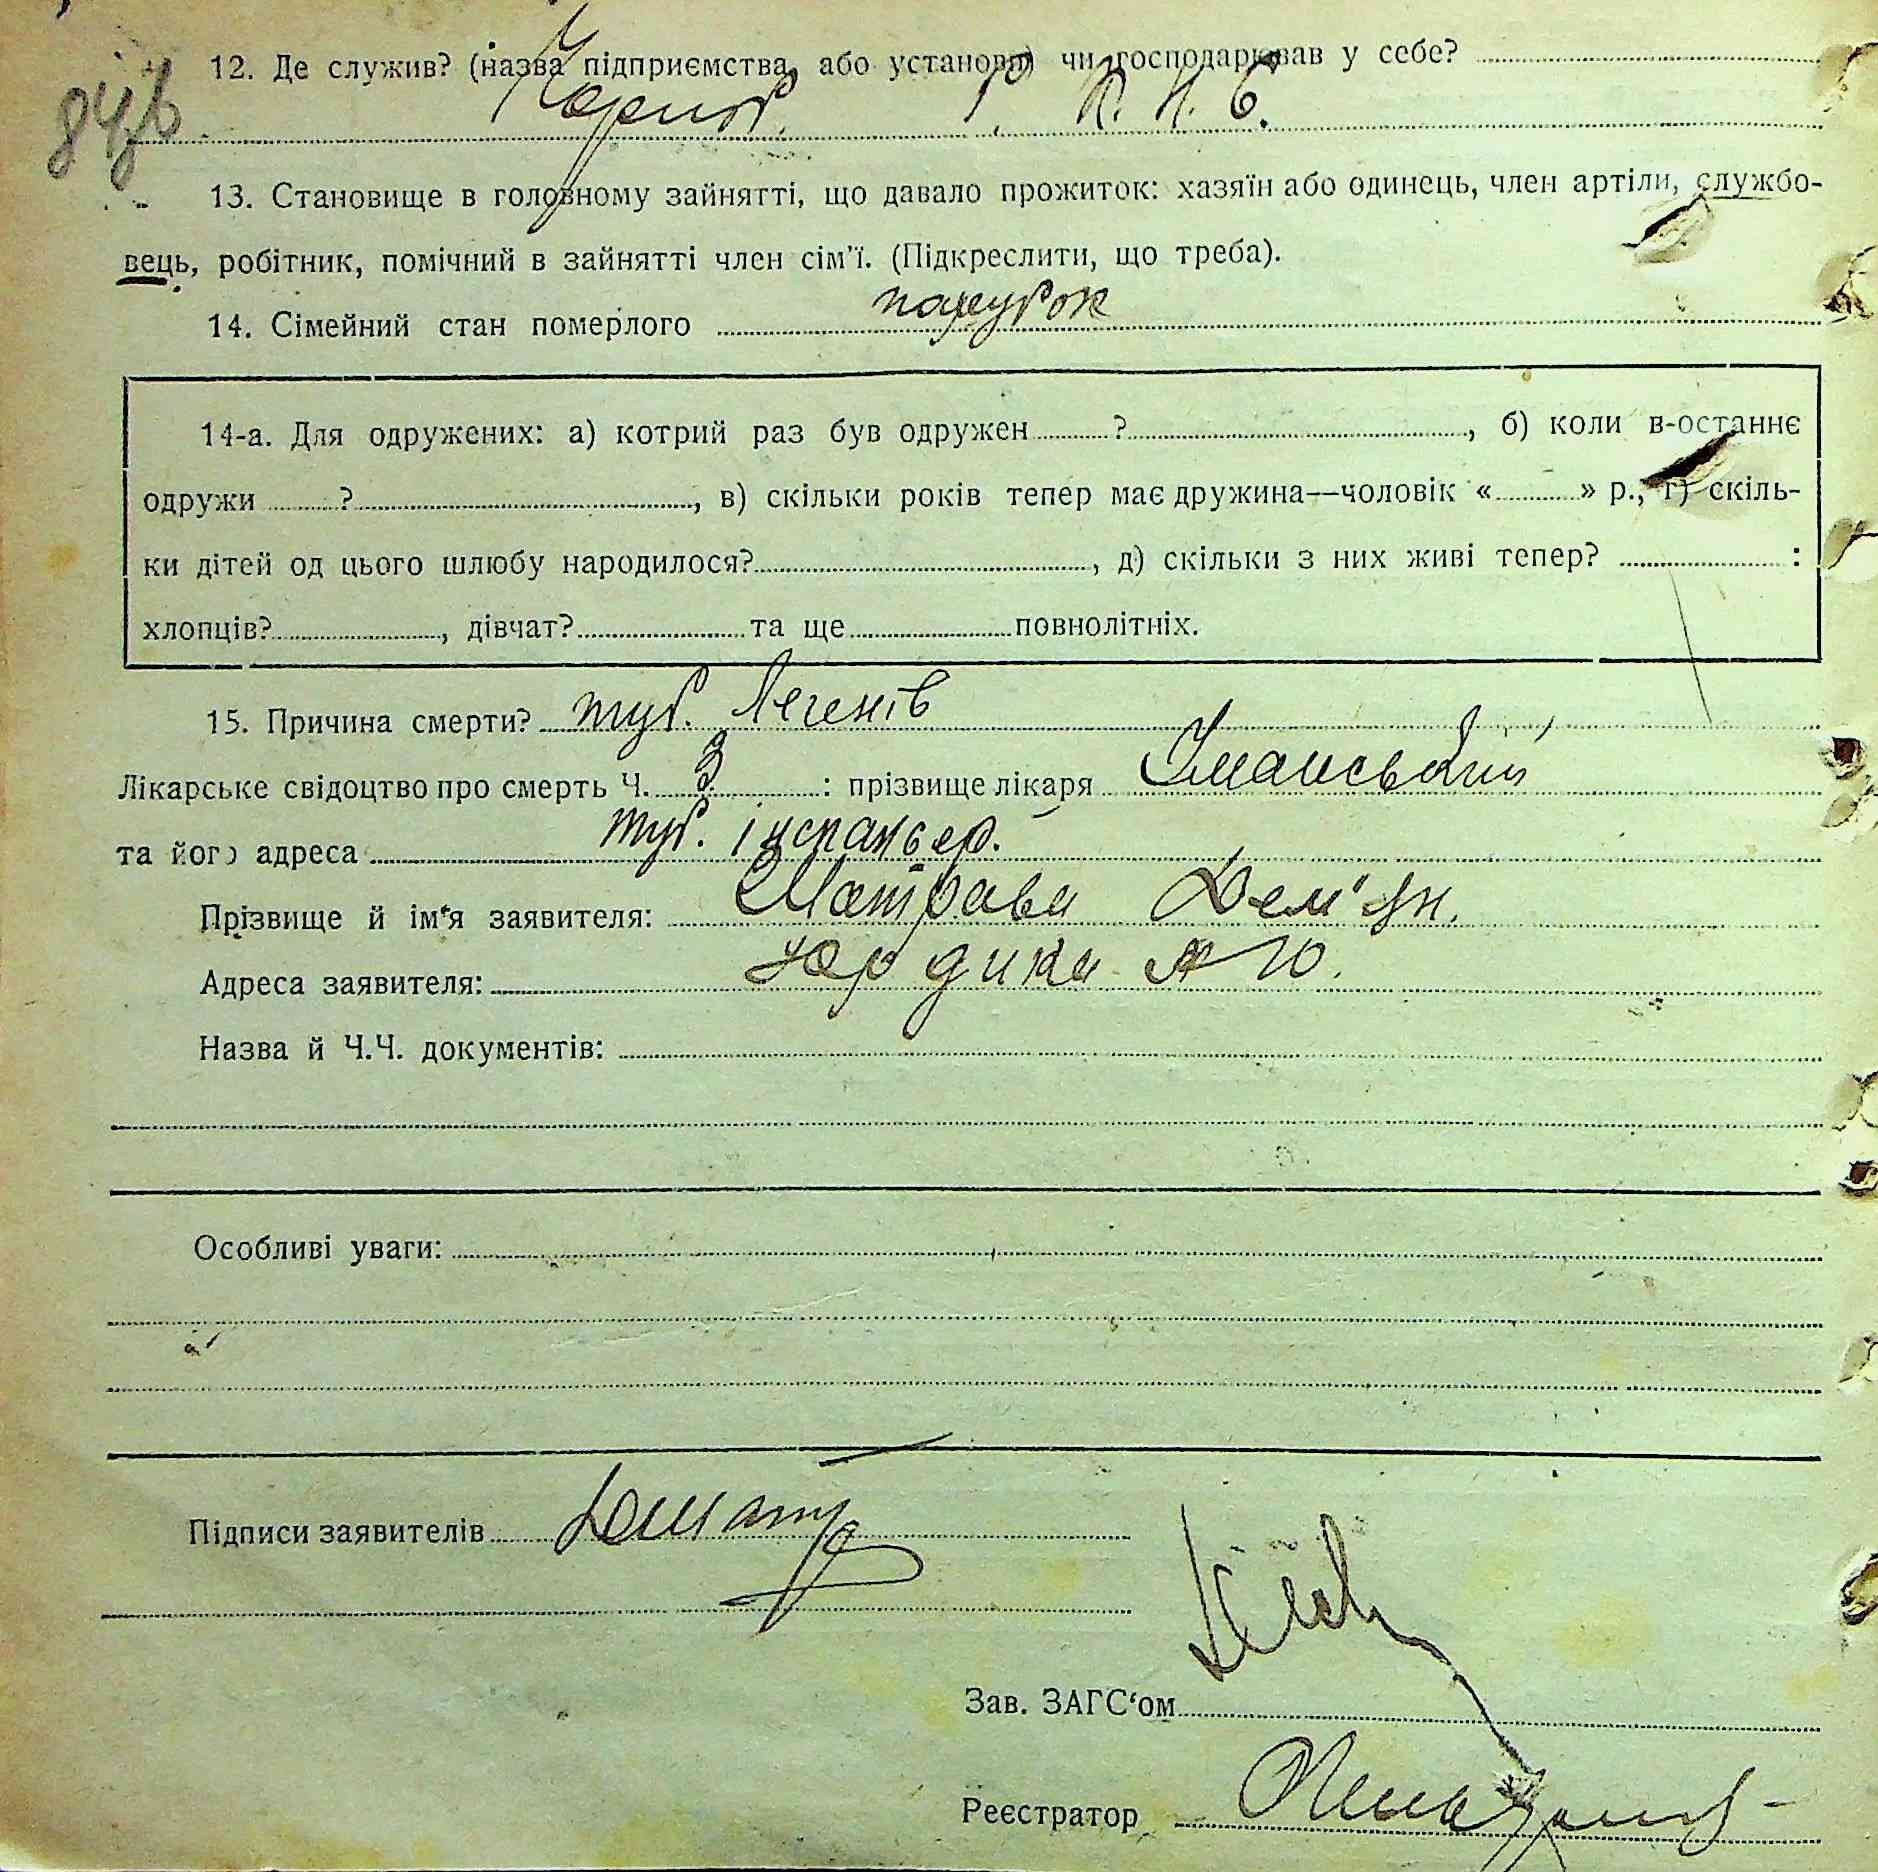 12. Де служив? (назва підприємства, або установи) чи господарював у себе?
Р. К. Н. С.
13. Становище в головному зайнятті, що давало прожиток: хазяїн або одинець, член артіли, службо-
вець, робітник, помічний в зайнятті член сім'ї. (Підкреслити, що треба).
14. Сімейний стан померлого парубок
14-а. Для одружених: а) котрий раз був одружен ? , б) коли в-останнє
одружи ? , в) скільки років тепер має дружина—чоловік « » р., г) скіль-
ки дітей од цього шлюбу народилося? , д) скільки з них живі тепер? :
хлопців? , дівчат? та ще повнолітніх.
15. Причина смерти? туб. легенів
Лікарське свідоцтво про смерть Ч. 3 : прізвище лікаря Уманський
та його адреса туб.
Прізвище й ім'я заявителя: Шатрава Дем'ян.
Адреса заявителя: Юрдика
Назва й Ч.Ч. документів:
Особливі уваги:
Підписи заявителів
Зав. ЗАГС'ом
Реєстратор